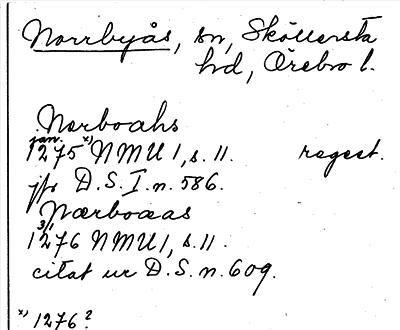 Norrbyås, sn, Sköllersta
hd, Örebro l.
Norboahs
jan.
1275 x) NMU 1, s. 11. regest.
jfr D.S. I. n. 586.
Nærboaas
3/1
1276 NMU 1, s. 11.
citat ur D.S. n. 609.
x) 1276?